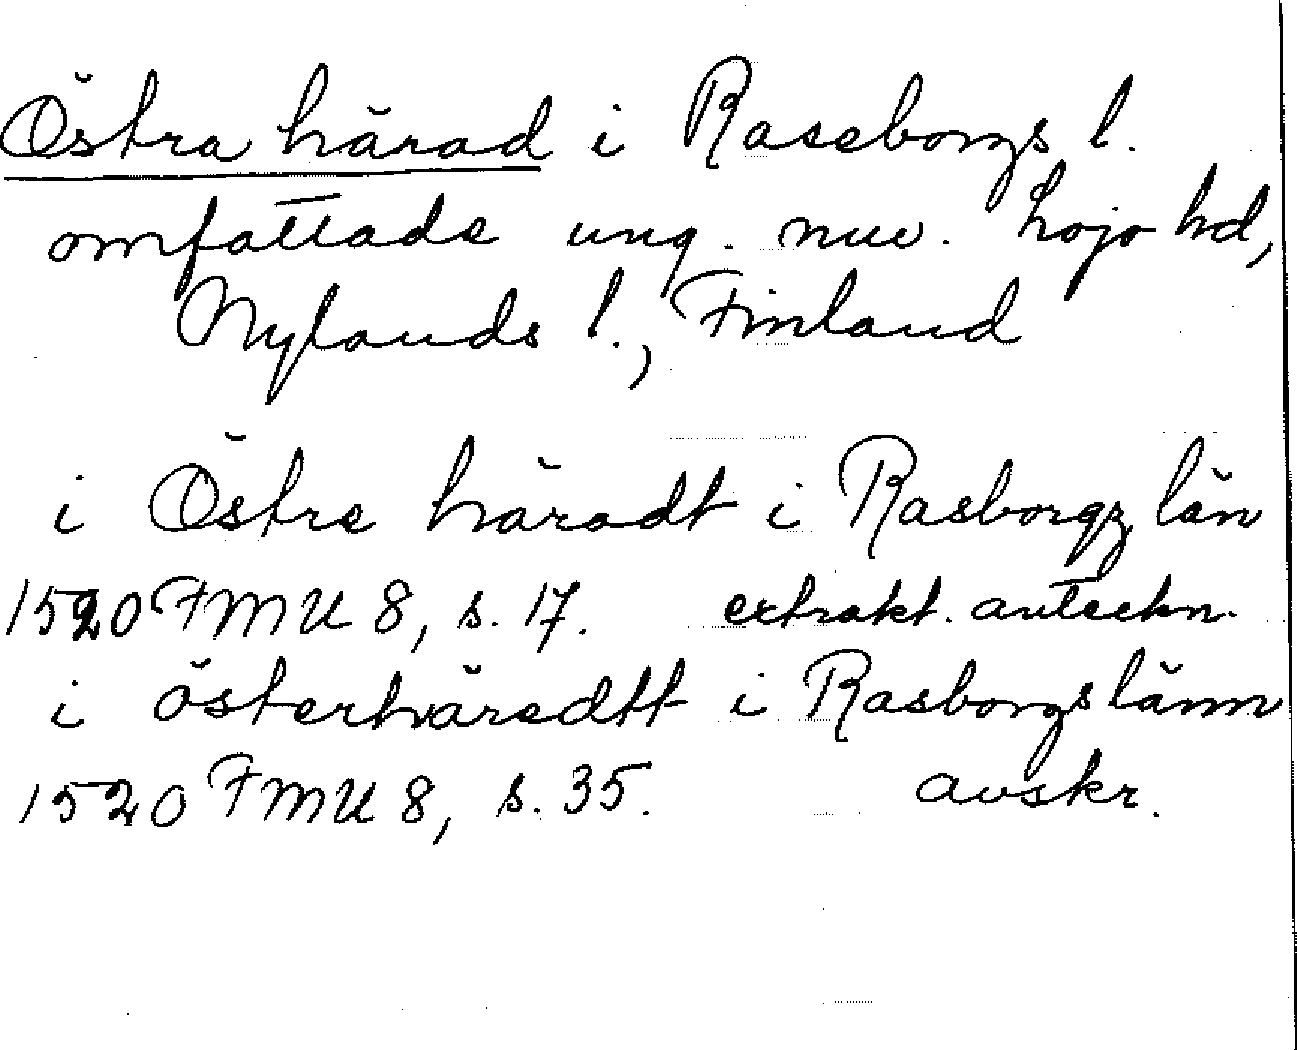 Östra härad i Raseborgs l.
omfattade ung. nuv. Lojo hd,
Nylands l., Finland
i Östre häradt i Rasborgz län
1520 FMU 8, s. 17. extrakt. anteckn.
i österhäredtt i Rasborgs länn
1520 FMU 8, s. 35. avskr.